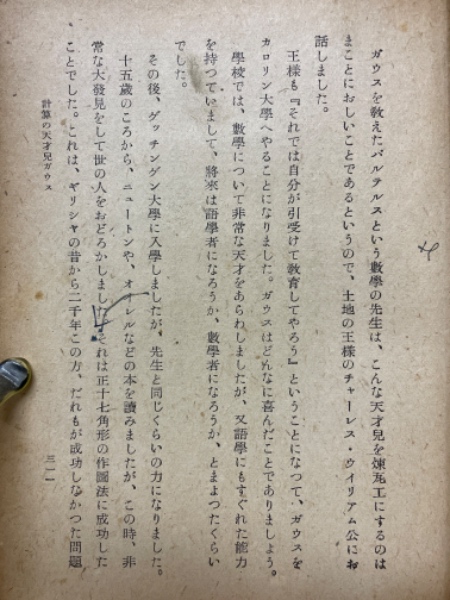 ガウスを教えたバルテルスという數學の先生は、こんな天才兒を煉瓦工にするのは
まことにおしいことであるというので、土地の王樣のチャーレス・ウイリアム公にお
話しました。
王樣も『それでは自分が引受けて教育してやろう』ということになつて、ガウスを
カロリン大學へやることになりました。ガウスはどんなに喜んだことでありましょう。
學校では、數學について非常な天才をあらわしましたが、又語學にもすぐれた能力
を持つていまして、將來は語學者になろうか、數學者になろうか、とまよつたくらい
でした。
その後、ゲッチンゲン大學に入學しましたが、先生と同じくらいの力になりました。
十五歲のころから、ニュートンや、オイレルなどの本を讀みましたが、この時、非
常な大發見をして世の人をおどろかしました。それは正十七角形の作圖法に成功した
ことでした。これは、ギリシャの昔から二千年この方、だれもが成功しなかつた問題
計算の天才兒ガウス
三一